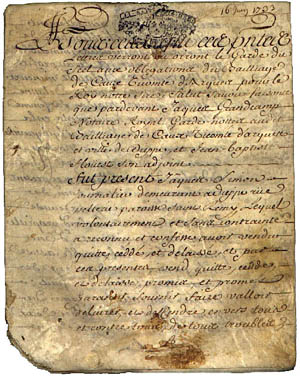 16 Juin 1703
A Tous ceux qui ces pntes
Lettres verront et orront Le Garde du
Scel aux obligations du Bailliage
de Caux Vicomté darques pour le
Roy notre Sire Salut Savoir faisons
que pardevant Jaques Grandcamp
Notaire Royal Garde nottes au
Bailliage de Caux Vicomté darques
et ville de dieppe et Jean baptiste
son adjoint
fut present Jaques Simon
demeurant a dieppe rue
paroisse Saint Remy Lequel
volontairement et sans contrainte
a reconnu et confessé avoir vendu
quitté, ceddé, et delaissé, et par
ces presentes vend quitte, cedde,
et delaisse, promis et promet
garantir fournir faire valloir
delivrer, et deffendre envers tous
et contre tous, de tous troubles